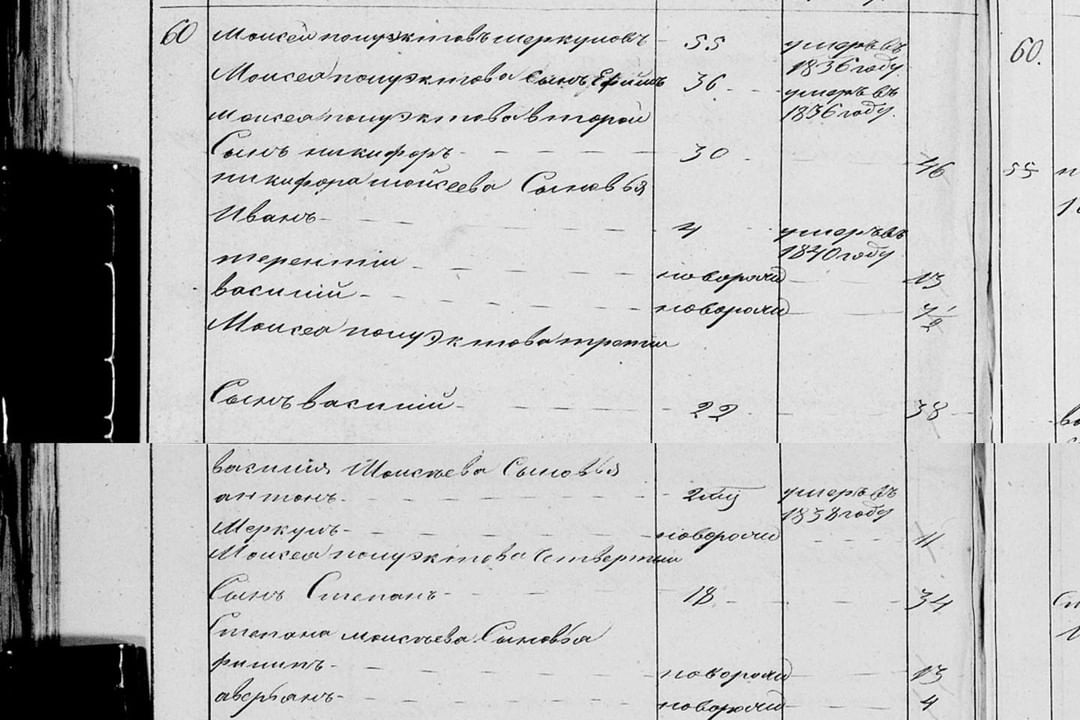 60 Моисей полуэктовъ меркуловъ 55 умеръ въ 60.
1836 году
Моисея полуэктова Сынъ Ефимъ 36 умеръ въ
1836 году.
Моисея полуэктова второй
Сынъ никифоръ 30 46 55
никифора моисеева Сыновья
Иванъ 4 умеръ въ
1840 году
терентий новорожд 13
василий новорожд 7 1/2
Моисея полуэктова третий
Сынъ василий 22 38
василия Моисеева Сыновья
антонъ 2 нед умеръ въ
1838 году
Меркулъ новорожд 11
Моисея полуэктова Четвертый
Сынъ Степанъ 18 34
Степана моисеева Сыновья
филипъ новорожд 13
аверьянъ новорожд 4